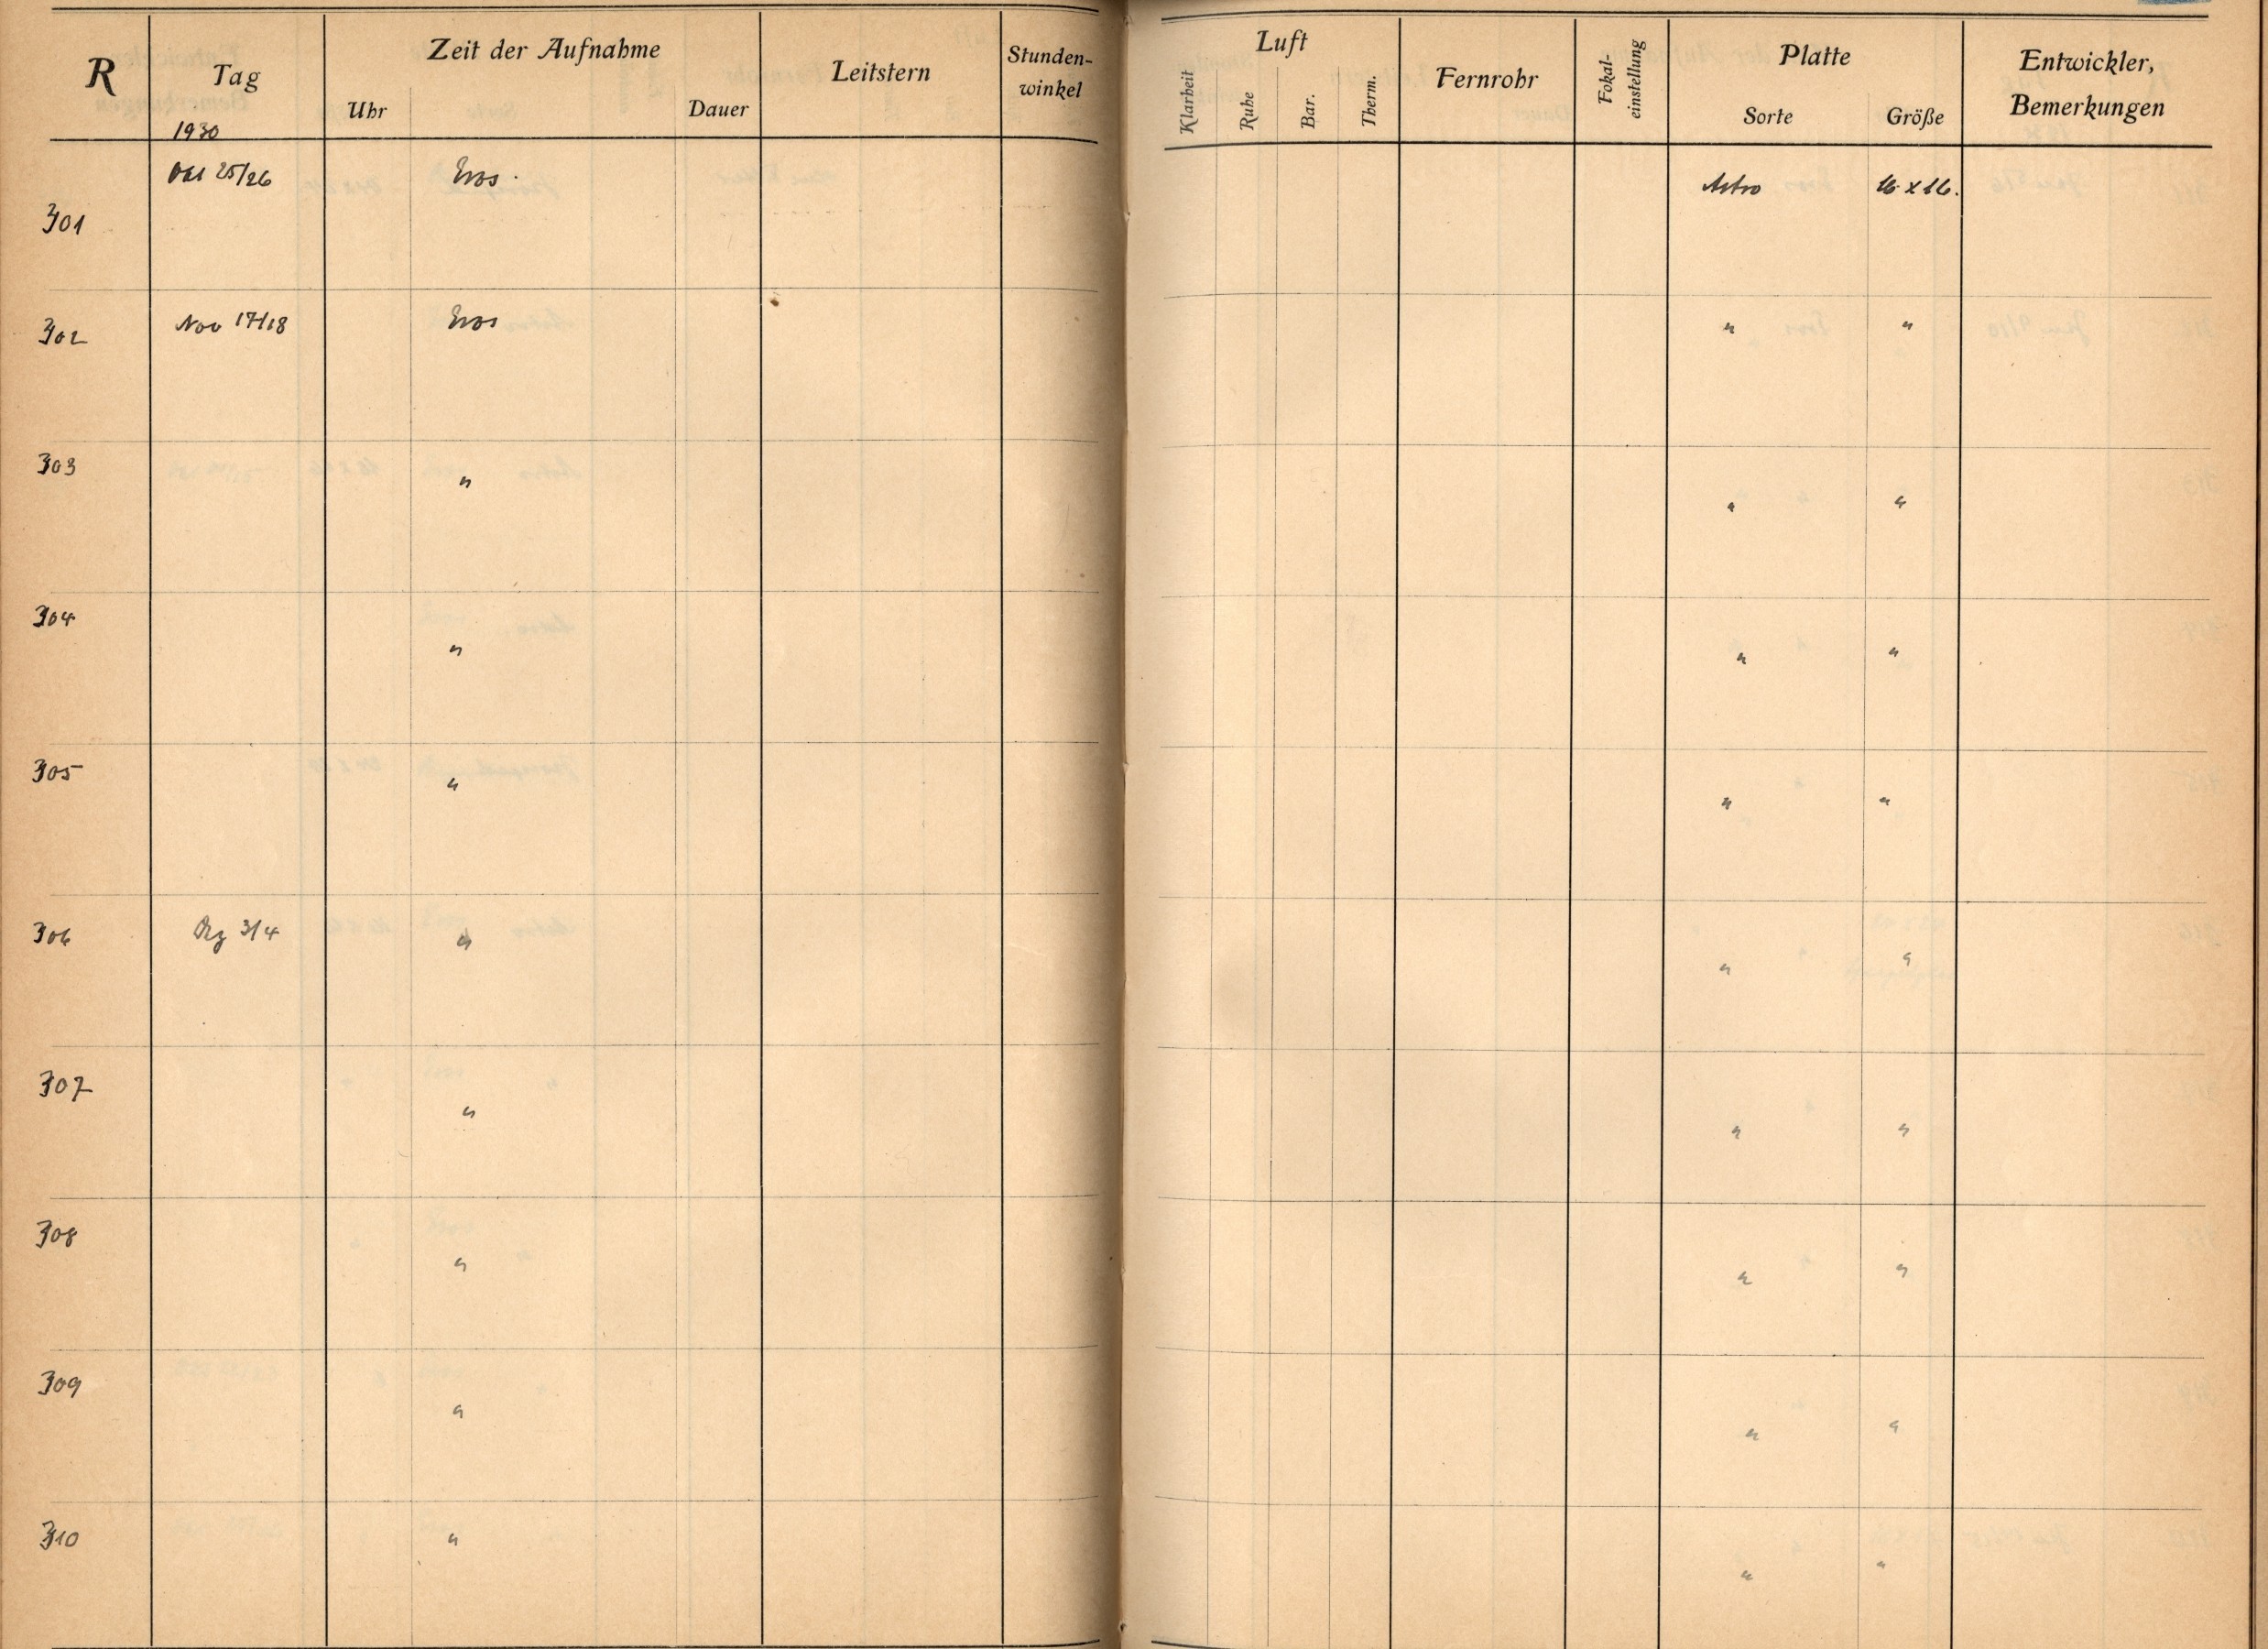 R Tag Zeit der Aufnahme Leitstern Stunden-winkel Luft Fernrohr Fokal-einstellung Platte Entwickler, Bemerkungen
Uhr Dauer Klarheit Ruhe Bar. Therm. Sorte Größe
1930
301 Okt 25/26 Eros Astro 16 x 16.
302 Nov 17/18 Eros " "
303 " " "
304 " " "
305 " " "
306 Dz 3/4 " " "
307 " " "
308 " " "
309 " " "
310 " " "